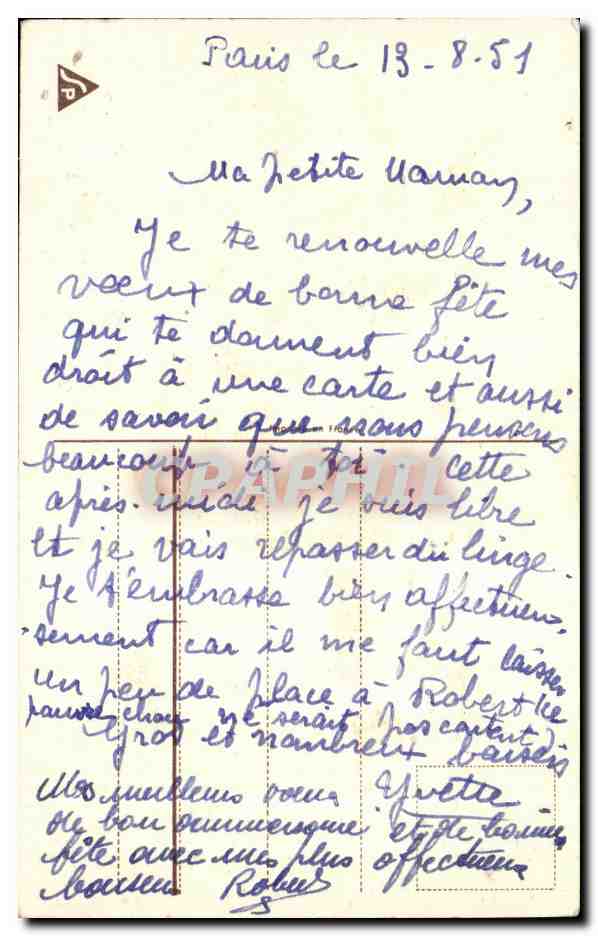 Paris le 13-8-51
SP
Ma petite Maman,
Je te renouvelle mes
vœux de bonne fête
qui te donnent bien
droit à une carte et aussi
de savoir que nous pensons
beaucoup à toi. Cette
après-midi je suis libre
et je vais repasser du linge.
Je t'embrasse bien affectueu-
sement car il me faut laisser
un peu de place à Robert (le
pauvre chou ne serait pas content)
Gros et nombreux baisers
Yvette
Mes meilleurs vœux
de bon anniversaire et de bonne
fête avec mes plus affectueux
baisers Robert
CPAPHIL